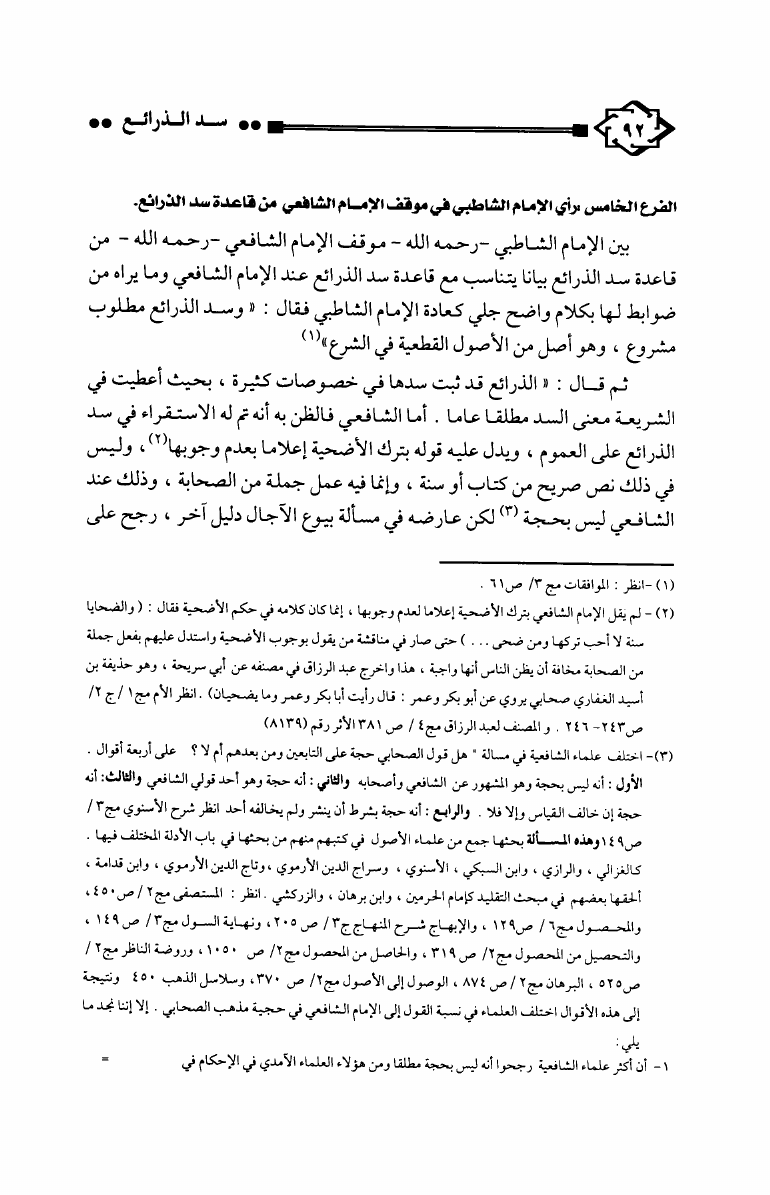 ٩٢
●● سـد الـذرائـع ●●
الفرع الخامس :رأي الإمام الشاطبي في موقف الإمـام الشافعي من قاعدة سد الذرائع.
بين الإمـام الشـاطبي -رحـمـه الله - مـوقـف الإمـام الشـافعي -رحـمـه الله - من
قاعدة سـد الذرائع بيانا يتناسب مع قاعـدة سد الذرائع عند الإمام الشافعي وما يراه من
ضوابط لـها بكـلام واضح جلي كعادة الإمـام الشاطبي فقال : « وسـد الذرائع مطلوب
مشروع ، وهو أصل من الأصول القطعية في الشرع»(١)
ثـم قـال : « الذرائع قد ثبت سدها في خصوصات كثيرة ، بحيث أعطيت في
الشريعـة معنى السد مطلقا عاما . أما الشافعي فالظن به أنه تم له الاستـقـراء في سد
الذرائع على العموم ، ويدل عليه قوله بترك الأضحية إعلاما بعدم وجوبها(٢)، وليس
في ذلك نص صريح من كتاب أو سنة ، وإنما فيه عمل جملة من الصحابة ، وذلك عند
الشافعي ليس بحجة (٣) لكن عارضه في مسألة بيوع الآجال دليل آخر ، رجح على
(١)-انظر : الموافقات مج ٣/ ص٦١ .
(٢)- لم يقل الإمام الشافعي بترك الأضحية إعلاما لعدم وجوبها ، إنما كان كلامه في حكم الأضحية فقال : ( والضحايا
سنة لا أحب تركها ومن ضحى . . . ) حتى صار في مناقشة من يقول بوجوب الأضحية واستدل عليهم بفعل جملة
من الصحابة مخافة أن يظن الناس أنها واجبة ، هذا واخرج عبد الرزاق في مصنفه عن أبي سريحة ، وهو حذيفة بن
أسيد الغفاري صحابي يروي عن أبو بكر وعمر : قال رأيت أبا بكر وعمر وما يضحيان) .انظر الأم مج١ /ج ٢/
ص٢٤٣- ٢٤٦ . و المصنف لعبد الرزاق مج٤ / ص ٣٨١ الأثر رقم (٨١٣٩)
(٣)- اختلف علماء الشافعية في مسالة " هل قول الصحابي حجة على التابعين ومن بعدهم أم لا ؟ على أربعة أقوال .
الأول : أنه ليس بحجة وهو المشهور عن الشافعي وأصحابه والثاني : أنه حجة وهو أحد قولي الشافعي والثالث: أنه
حجة إن خالف القياس وإلا فلا . والرابع : أنه حجة بشرط أن ينشر ولم يخالفه أحد انظر شرح الأسنوي مج٣ /
ص١٤٩وهذه المسـألة بحثها جمع من علماء الأصول في كتبهم منهم من بحثها في باب الأدلة المختلف فيها .
كالغزالي ، والرازي ، وابن السبكي ، الأسنوي ، وسراج الدين الأرموي ،وتاج الدين الأرموي ، وابن قدامة ،
ألحقها بعضهم في مبحث التقليد كإمام الحرمين ، وابن برهان ، والزركشي .انظر : المستصفى مج٢ / ص٤٥٠،
والمحـصـول مج٦ / ص١٢٩ ، والإبهـاج شـرح المنهـاج ج٣ / ص ٢٠٥ ، ونهـاية السـول مج٣ / ص ١٤٩ ،
والتحصيل من المحصول مج٢ / ص ٣١٩ ، والحاصل من المحصول مج٢ / ص ١٠٥٠ ، وروضة الناظر مج٢ /
ص٥٢٥ ، البرهان مج٢ / ص ٨٧٤ ، الوصول إلى الأصول مج٢ / ص ٣٧٠، وسلاسل الذهب ٤٥٠ ونتيجة
إلى هذه الأقوال اختلف العلماء في نسبة القول إلى الإمام الشافعي في حجية مذهب الصحابي . إلا إننا نجد ما
يلي :
١- أن أكثر علماء الشافعية رجحوا أنه ليس بحجة مطلقا ومن هؤلاء العلماء الآمدي في الإحكام في =